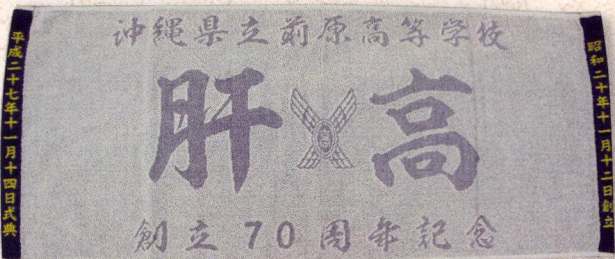 沖縄県立前原高等学校
肝高
創立70周年記念
昭和二十年十一月十二日創立
平成二十七年十一月十四日式典